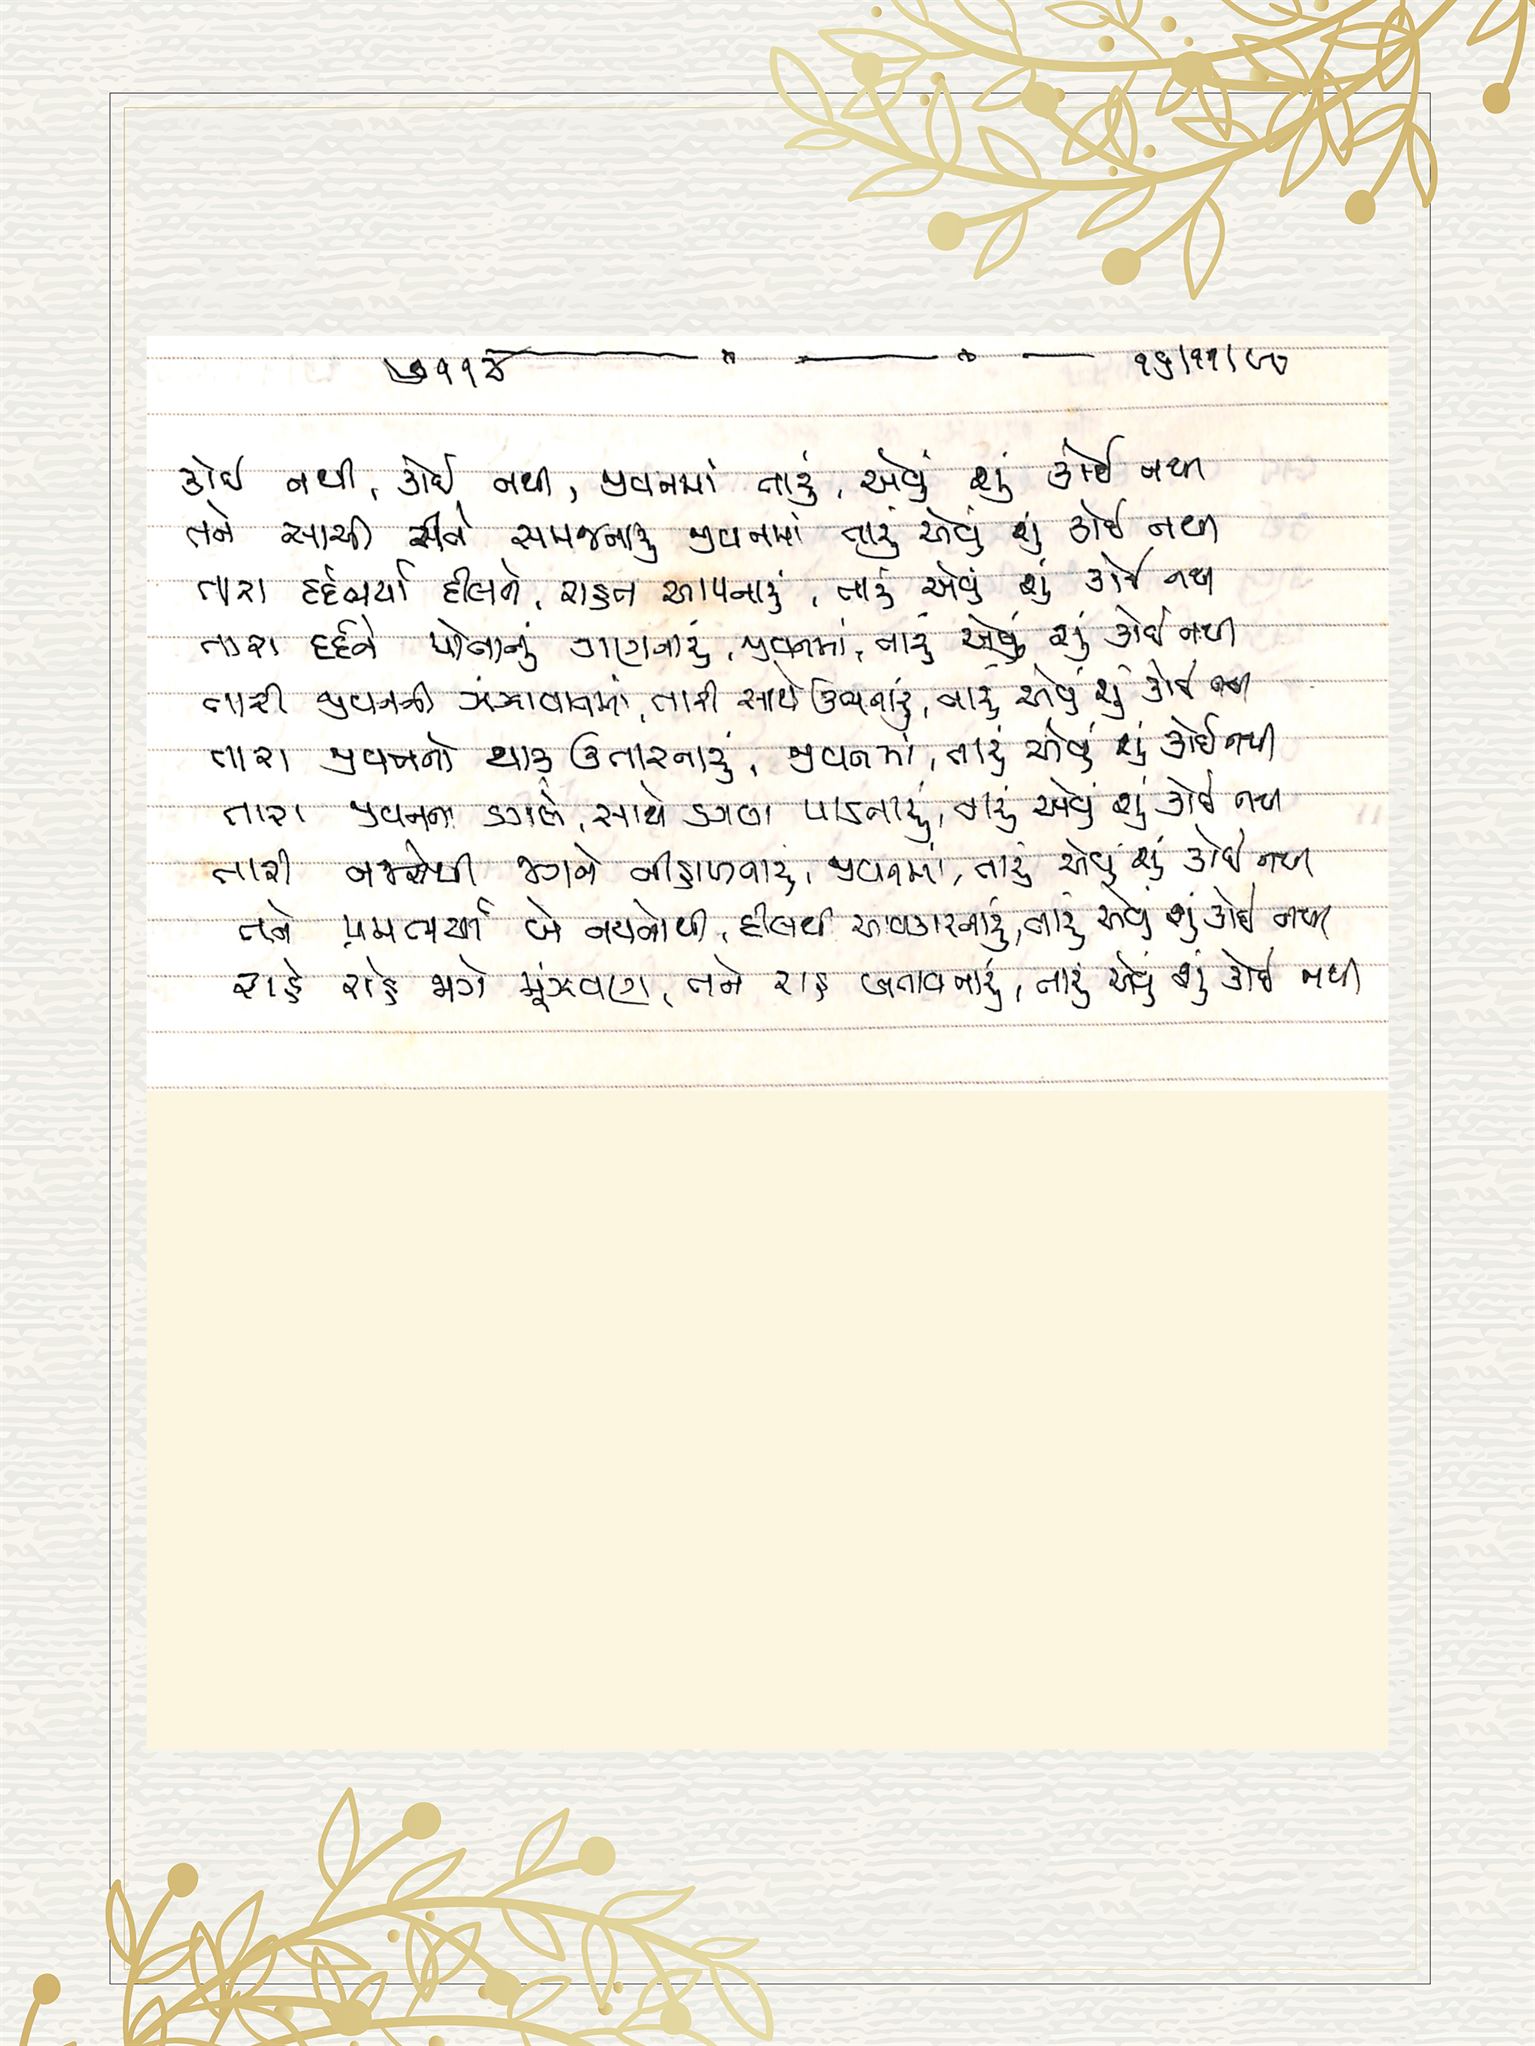 ૧૬/૧૧/૯૭
કોઈ નથી, કોઈ નથી, જીવનમાં તારું, એવું શું કોઈ નથી
તને સાચી રીતે સમજનારું જીવનમાં તારું એવું શું કોઈ નથી
તારા દર્દભર્યા દીલને, રાહત આપનારું, તારું એવું શું કોઈ નથી
તારા દર્દને પોતાનું ગણનારું, જીવનમાં, તારું એવું શું કોઈ નથી
તારી જીવનની ઝંઝાવાતમાં, તારી સાથે ઉભનારું, તારું એવું શું કોઈ નથી
તારા જીવનનો થાક ઉતારનારું, જીવનમાં, તારું એવું શું કોઈ નથી
તારા જીવનના ડગલે, સાથે ડગલા પાડનારું, તારું એવું શું કોઈ નથી
તારી નજરોથી જગને નીહાળનારું, જીવનમાં, તારું એવું શું કોઈ નથી
તને પ્રેમભર્યા બે નયનોથી, દીલથી આવકારનારું, તારું એવું શું કોઈ નથી
રાહે રાહે જાગે મૂંઝવણ, તને રાહ બતાવનારું, તારું એવું શું કોઈ નથી